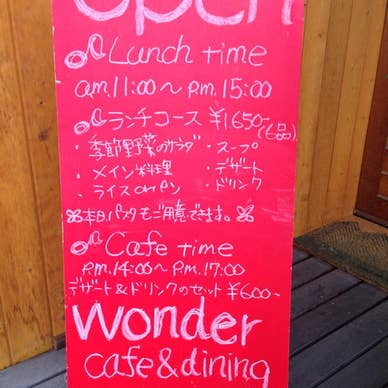 open
Lunch time
a.m.11:00～P.m.15:00
ランチコース ¥1,650-(6品)
・季節野菜のサラダ ・スープ
・メイン料理 ・デザート
・ライスorパン ・ドリンク
※本日パスタもご用意できます。※
Cafe time
P.m.14:00～P.m.17:00
デザート&ドリンクのセット ¥600～
wonder
cafe&dining